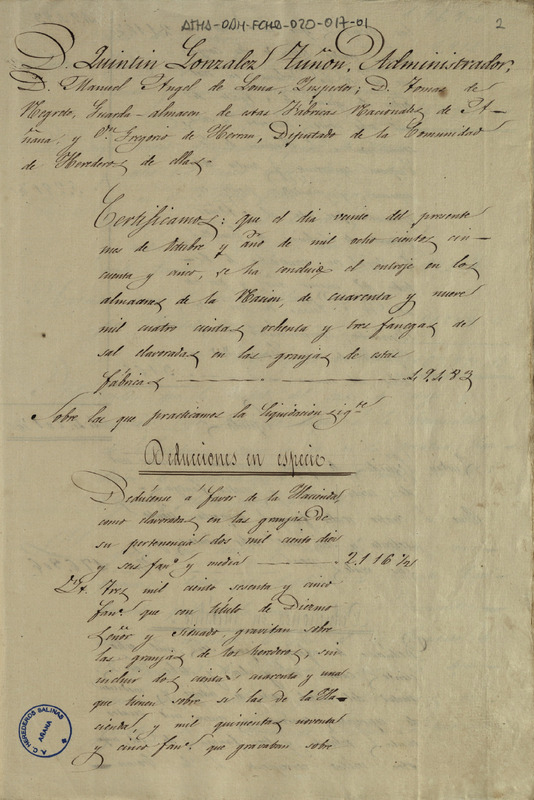 ATHA-DAH-FCHA-020-017-01
2
D. Quintin Gonzalez Tuñon, Administrador,
D. Manuel Angel de Loma, Ynspector; D. Tomas de
Negrete, Guarda-almacen de estas Fabricas Nacionales de A-
ñana, y Dn. Gregorio de Herran, Diputado de la Comunidad
de Herederos de ellas.
Certificamos: que el dia veinte del presente
mes de Octubre y año de mil ocho cientos cin-
cuenta y cinco, se ha concluido el entroje en los
almacenes de la Nacion, de cuarenta y nueve
mil cuatro cientas ochenta y tres fanegas de
sal elaboradas en las granjas de estas
fábricas 49.483
Sobre las que practicamos la liquidacion sigte
Deducciones en especie.
Dedúcense á favor de la Hacienda
como elaboradas en las granjas de
su pertenencia dos mil ciento diez
y seis fans y media 2.116 1/2
Yt. Tres mil ciento sesenta y cinco
fans. que con titulo de Diezmo
Señor y Situado, gravitan sobre
las granjas de los herederos, sin
incluir dos cientas cuarenta y una
que tienen sobre sí las de la Ha-
cienda, y mil quinientas noventa
y cinco fans. que gravaban sobre
A. C. HEREDEROS SALINAS
AÑANA